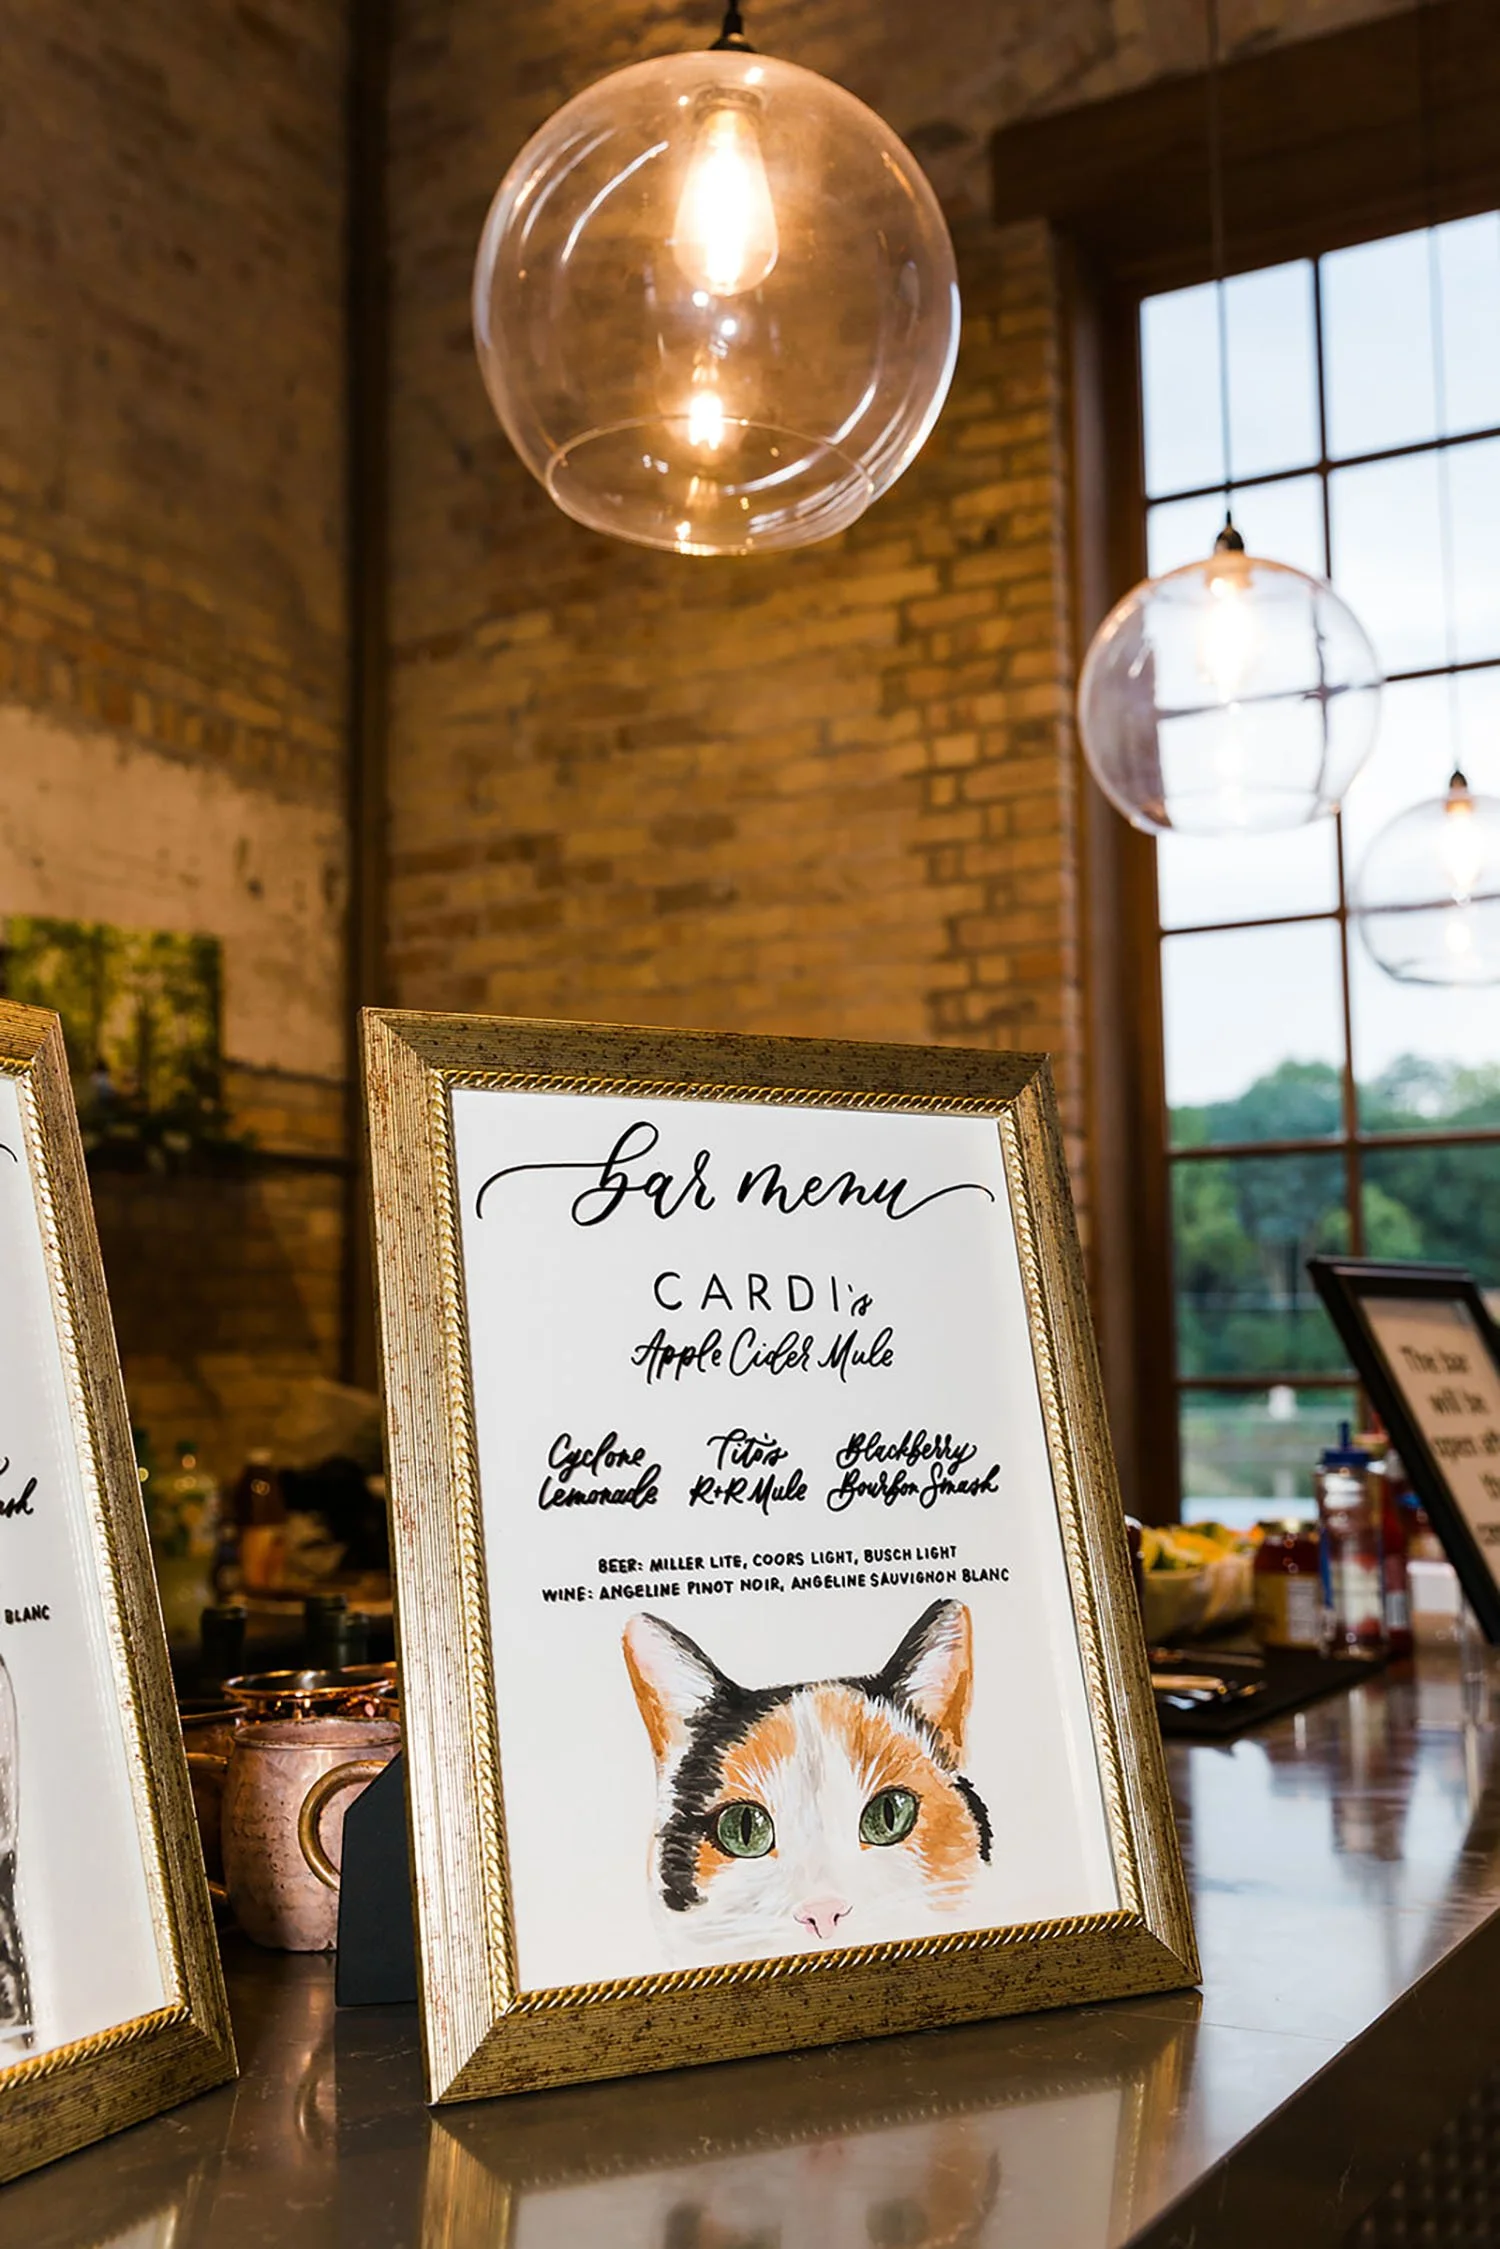 bar menu
CARDI's
Apple Cider Mule
Cyclone
Lemonade
Tito's
R+R Mule
Blackberry
Bourbon Smash
BEER: MILLER LITE, COORS LIGHT, BUSCH LIGHT
WINE: ANGELINE PINOT NOIR, ANGELINE SAUVIGNON BLANC
BLANC
The bar
will be
open